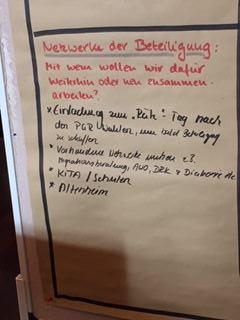 Netzwerke der Beteiligung:
Mit wem wollen wir dafür
weiterhin oder neu zusammen-
arbeiten?
* Einladung zum Tag nach
den PGR Wahlen, um
zu schaffen
* Vorhandene Netzwerke nutzen z.B.
Migrationsberatung, AWO, DRK + Diakonie etc.
* KITA / Schulen
* Altenheim